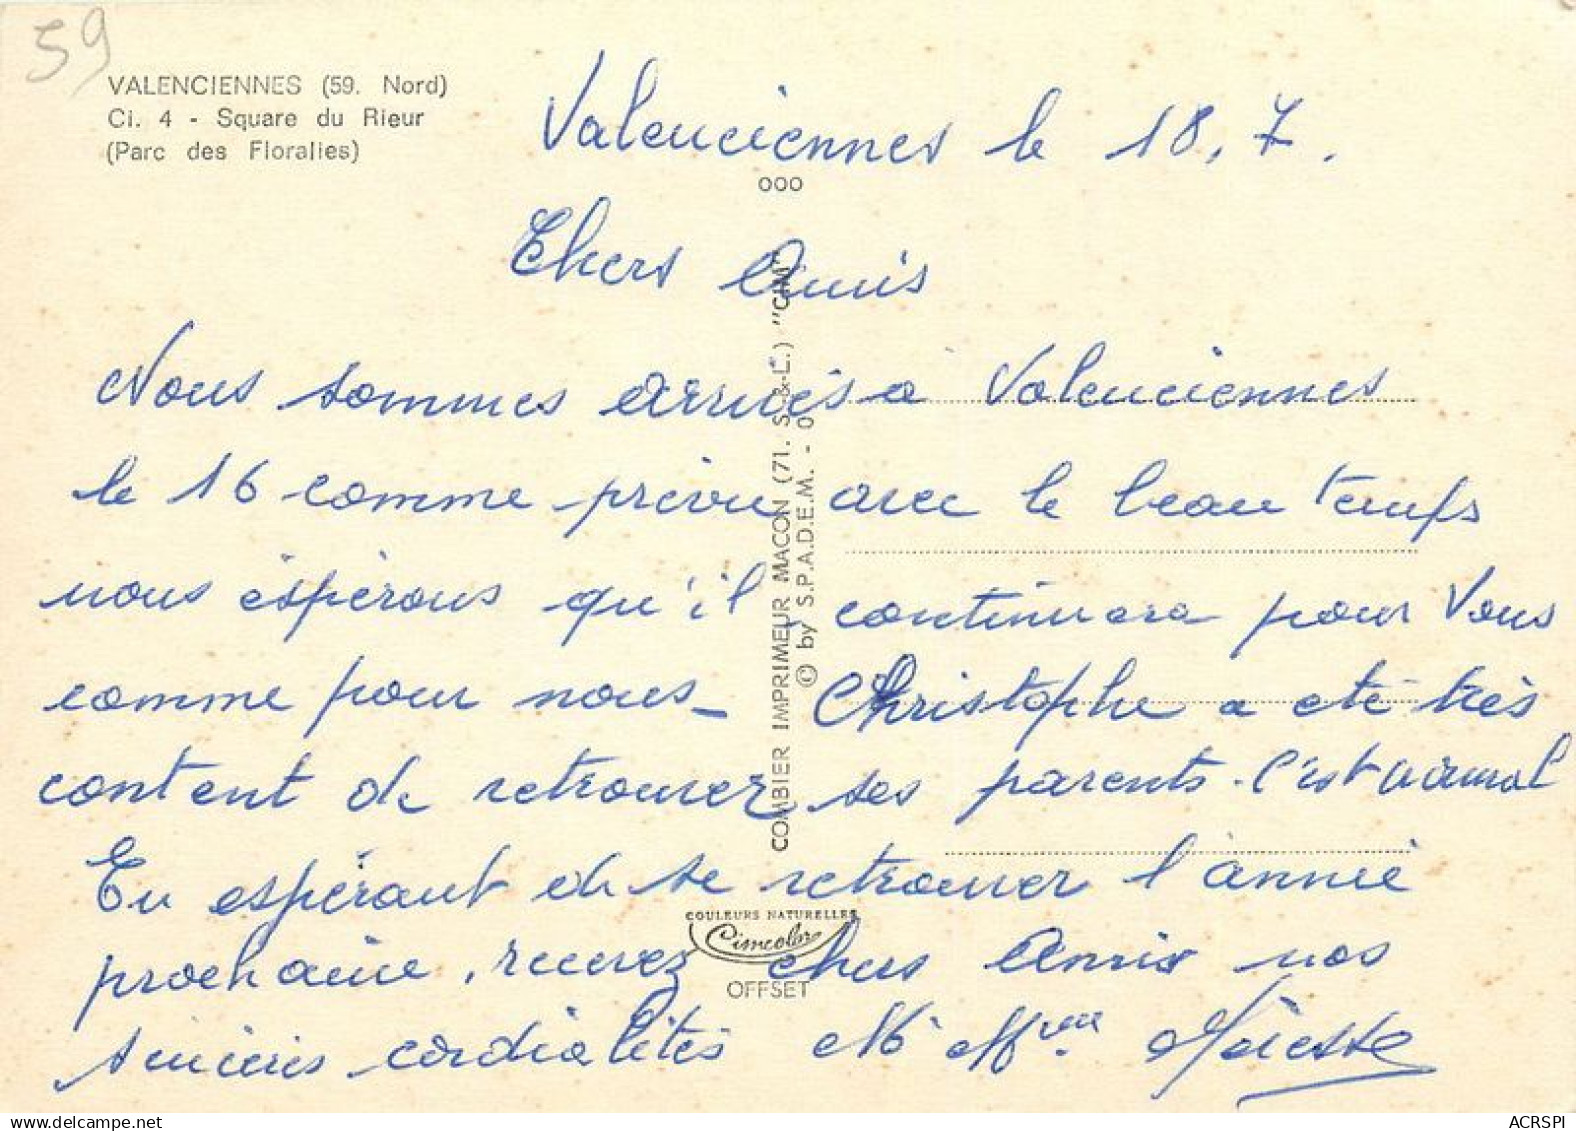 59
VALENCIENNES (59. Nord)
Ci. 4 - Square du Rieur
(Parc des Floralies)
Valenciennes le 18.7.
ooo
Chers Amis
Nous sommes arrivés a Valenciennes
le 16 comme prévu avec le beau temps
nous éspérons qu'il continuera pour Vous
comme pour nous_ Christophe a eté très
content de retrouver ses parents. C'est normal
En espérant de se retrouver l'année
prochaine, recevez chers Amis nos
sincères cordialités M Mme
COMBIER IMPRIMEUR MACON (71. S.-&-L.) "CIM"
© by S.P.A.D.E.M. - 0
COULEURS NATURELLES
Cimcolor
OFFSET
ACRSPI